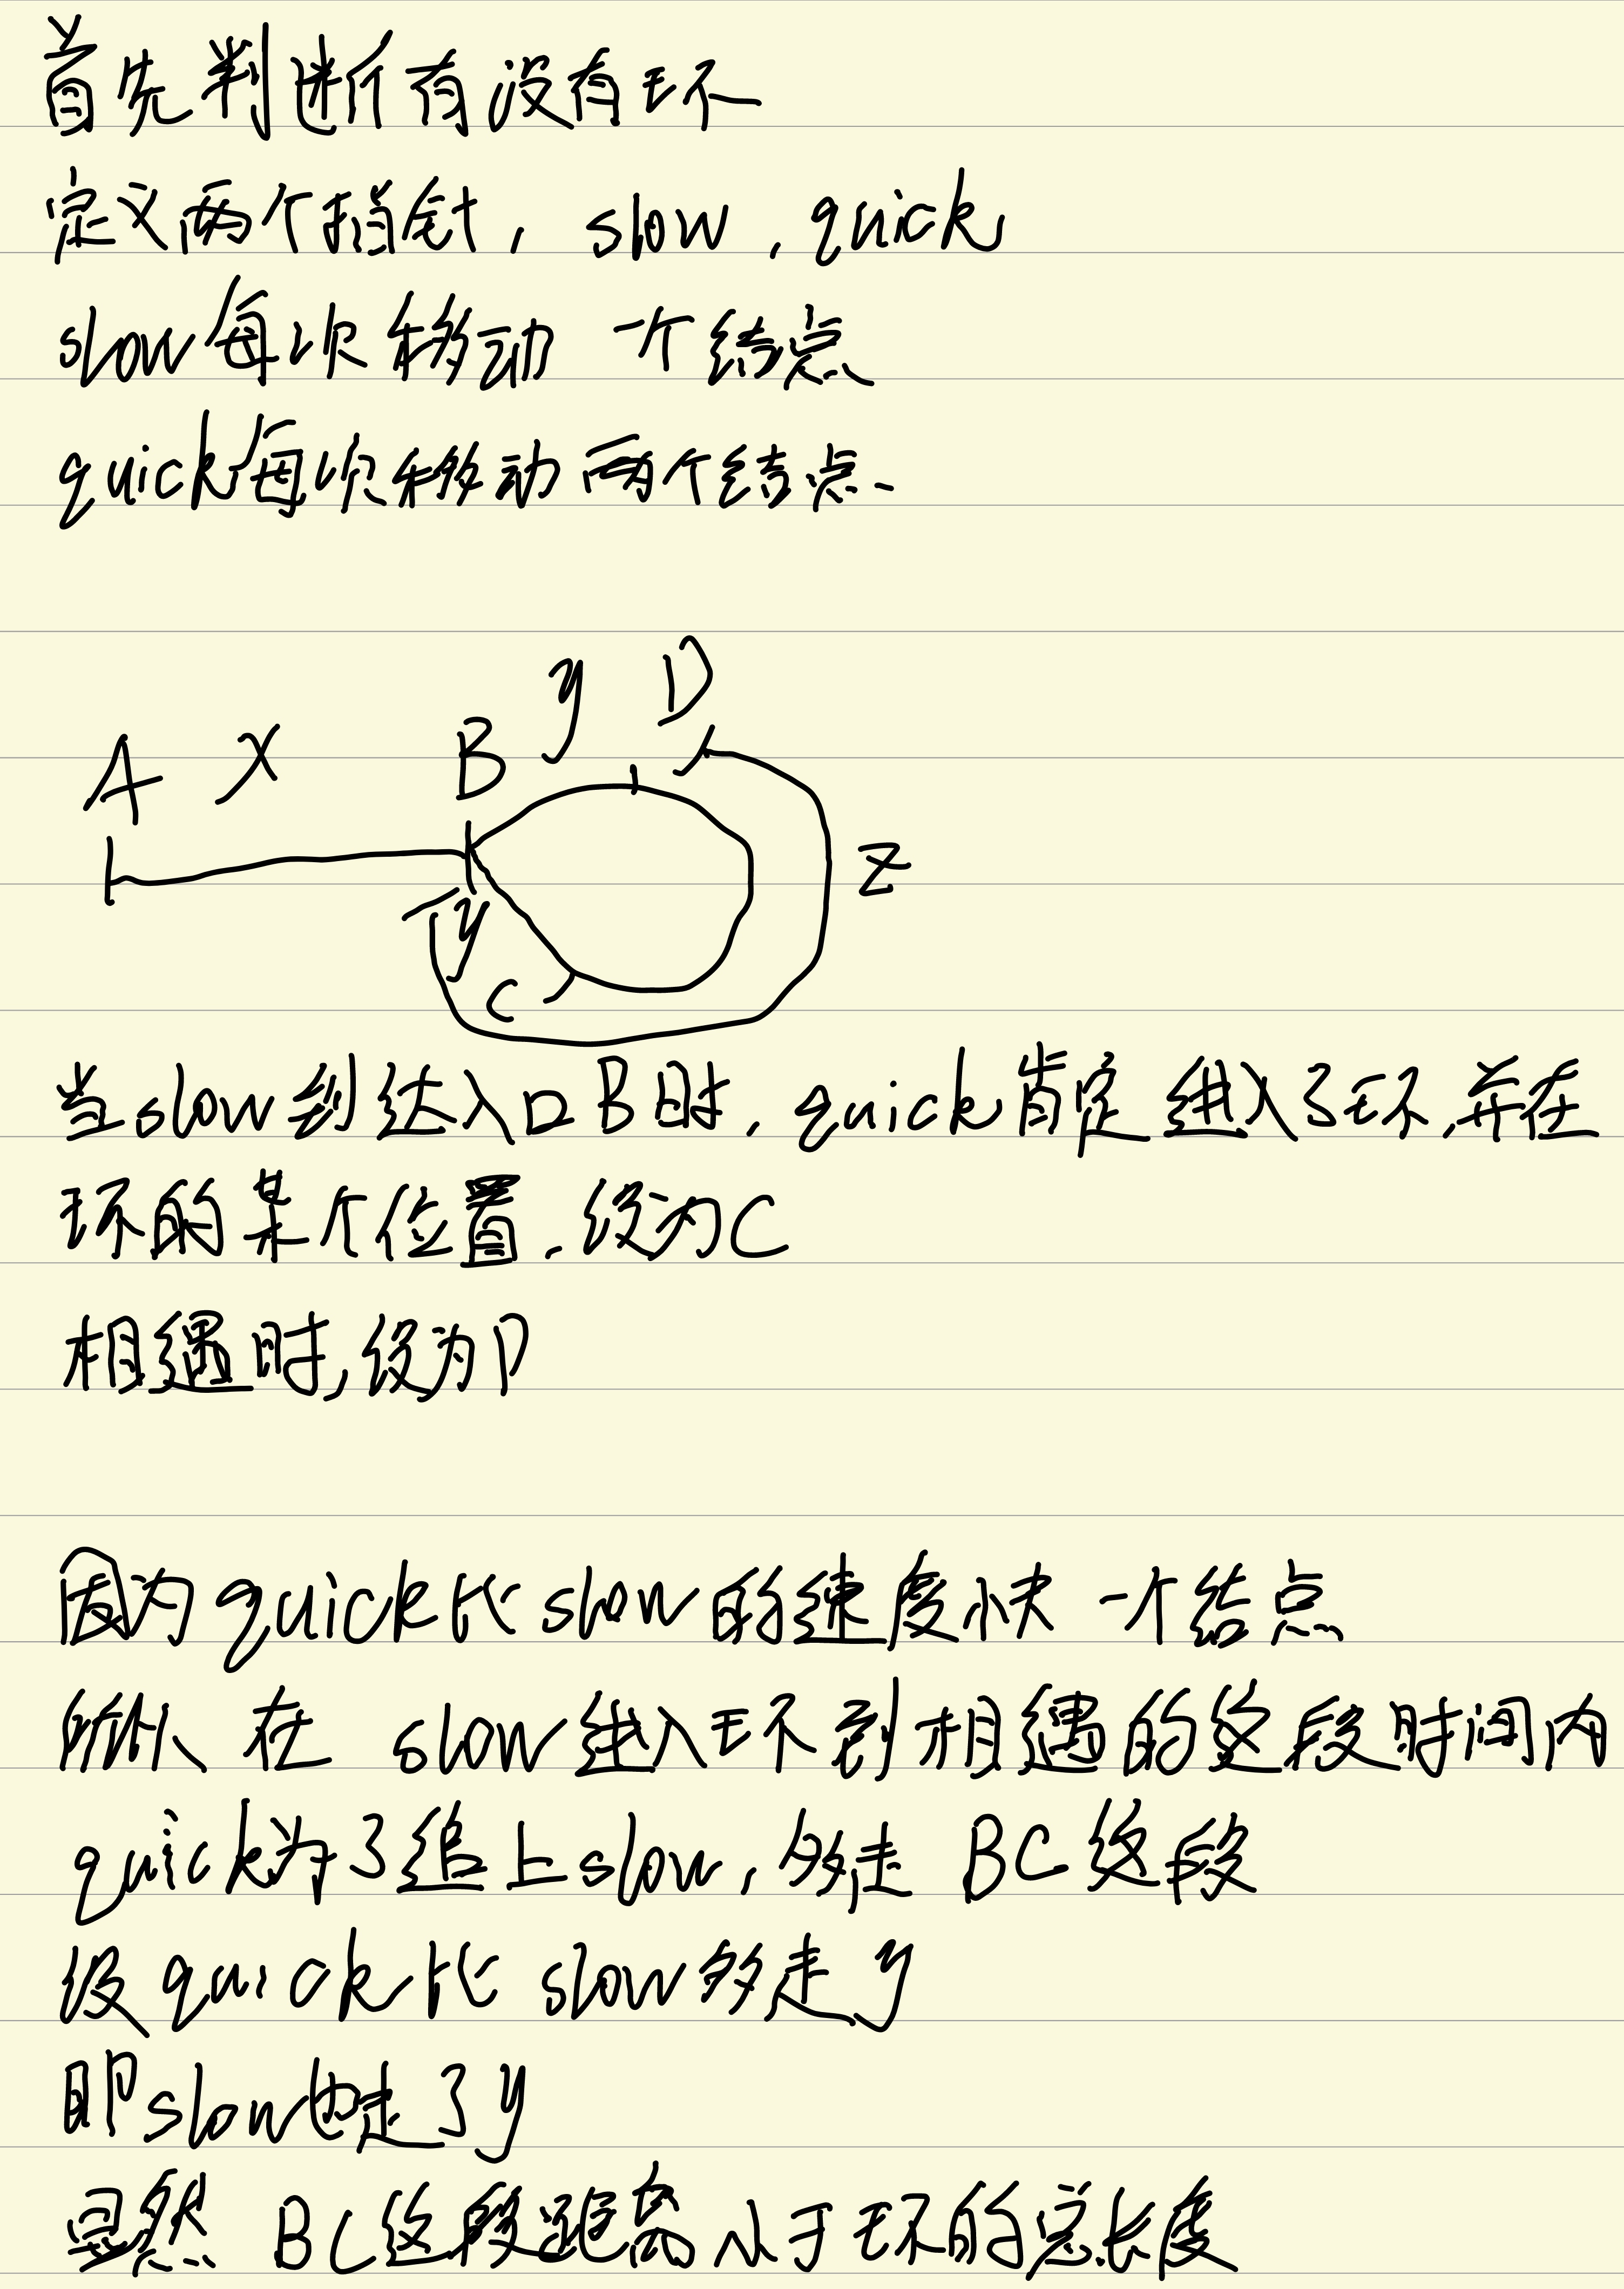 首先判断有没有环
定义两个指针, slow, quick
slow每次移动一个结点
quick每次移动两个结点.
y D
A X B
Z
y
C
当slow到达入口B时, quick肯定进入了环,并在
环的某个位置.设为C
相遇时,设为D
因为quick比slow的速度快一个结点
所以在 slow进入环到相遇的这段时间内
quick为了追上slow,多走BC这段
设quick比slow多走y
即slow也走了y
显然BC这段距离小于环的总长度